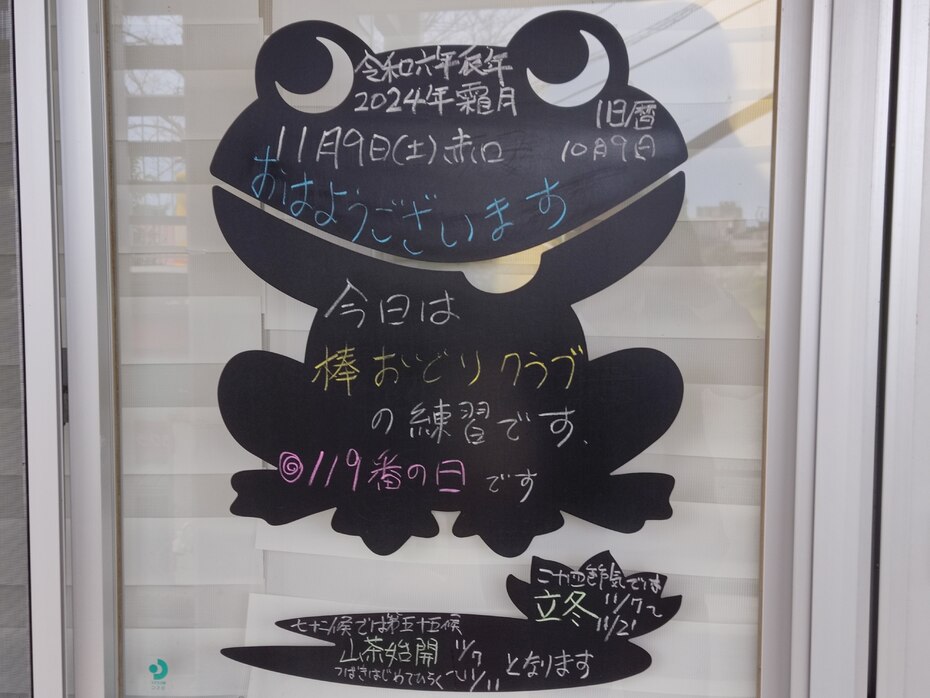 令和六年辰年
2024年霜月
11月9日(土)赤口
旧暦
10月9日
おはようございます
今日は
棒おどりクラブ
の練習です、
◎119番の日です
二十四節気では
立冬 11/7〜
11/21
七十二候では第五十五候
山茶始開 11/7
つばきはじめてひらく 〜11/11
となります